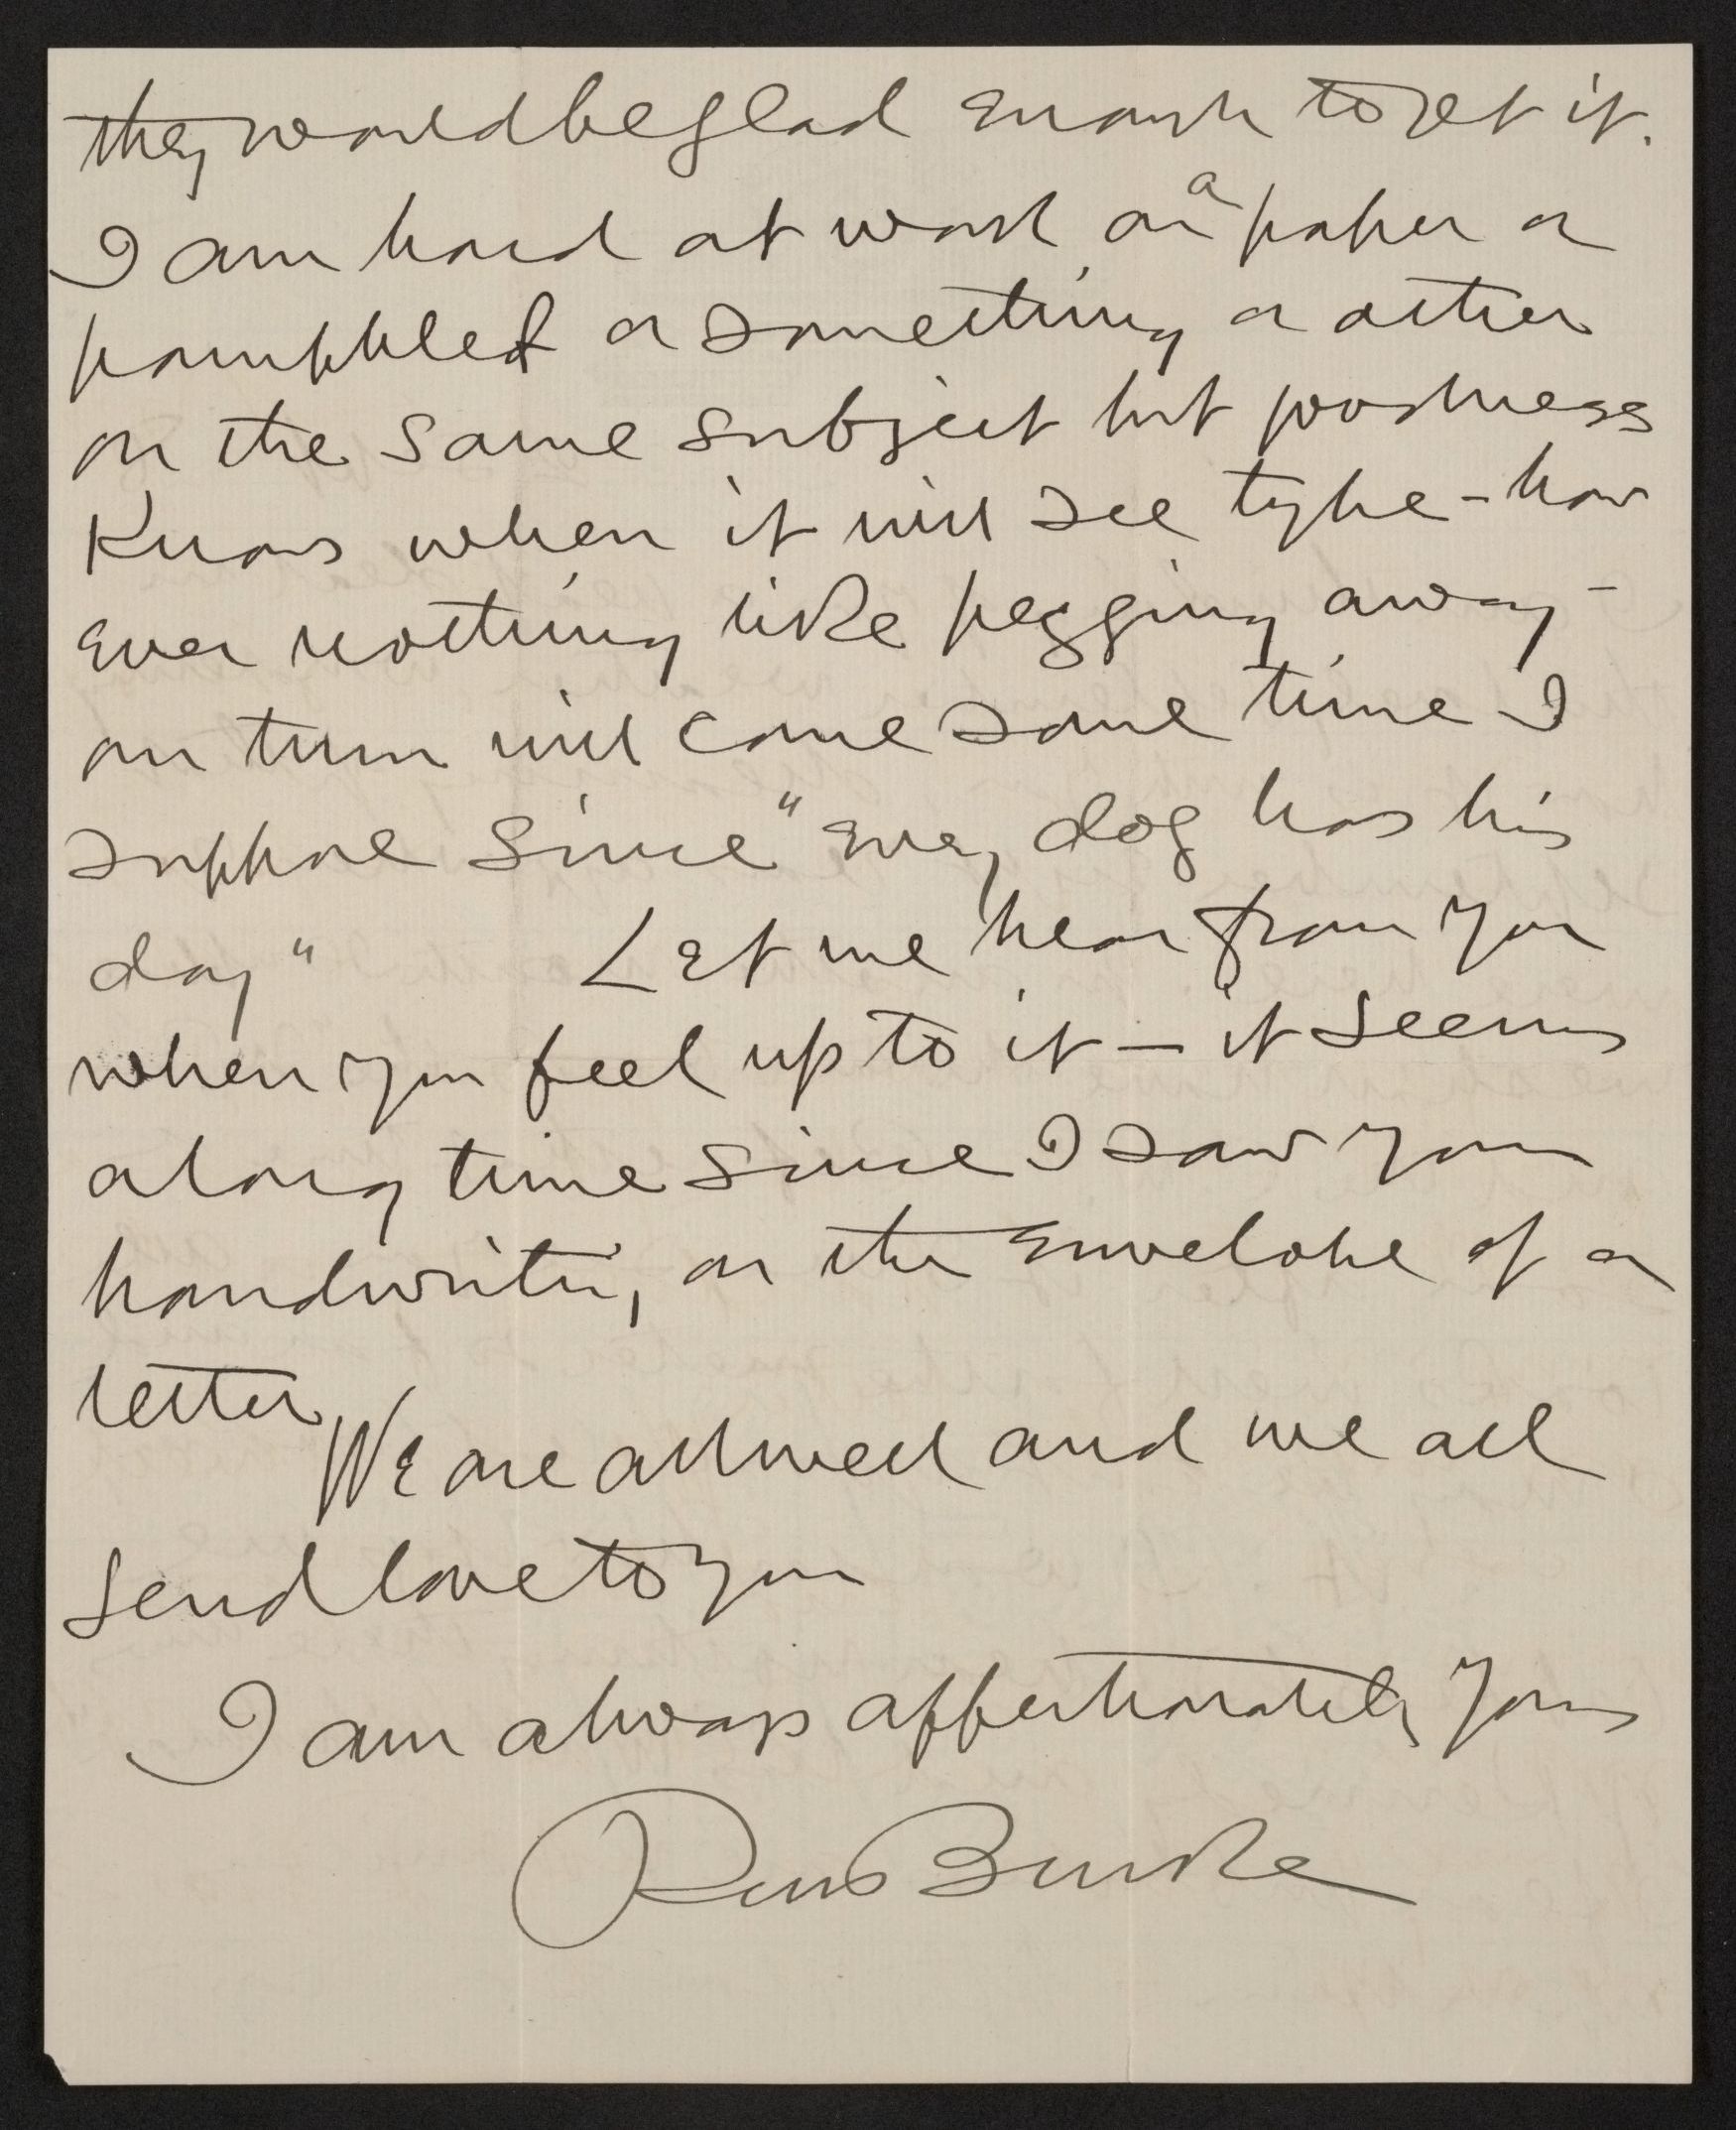 they would be glad enough to get it.
I am hard at work on a paper or
pamphlet or something or other
on the same subject but goodness
knows when it will see type - how
ever nothing like pegging away -
our turn will come some time I
suppose since "every dog has his
day" Let me hear from you
when you feel up to it — it seems
a long time since I saw your
handwriting on the envelope of a
letter
We are all well and we all
send love to you
I am always affectionately yours
Burke